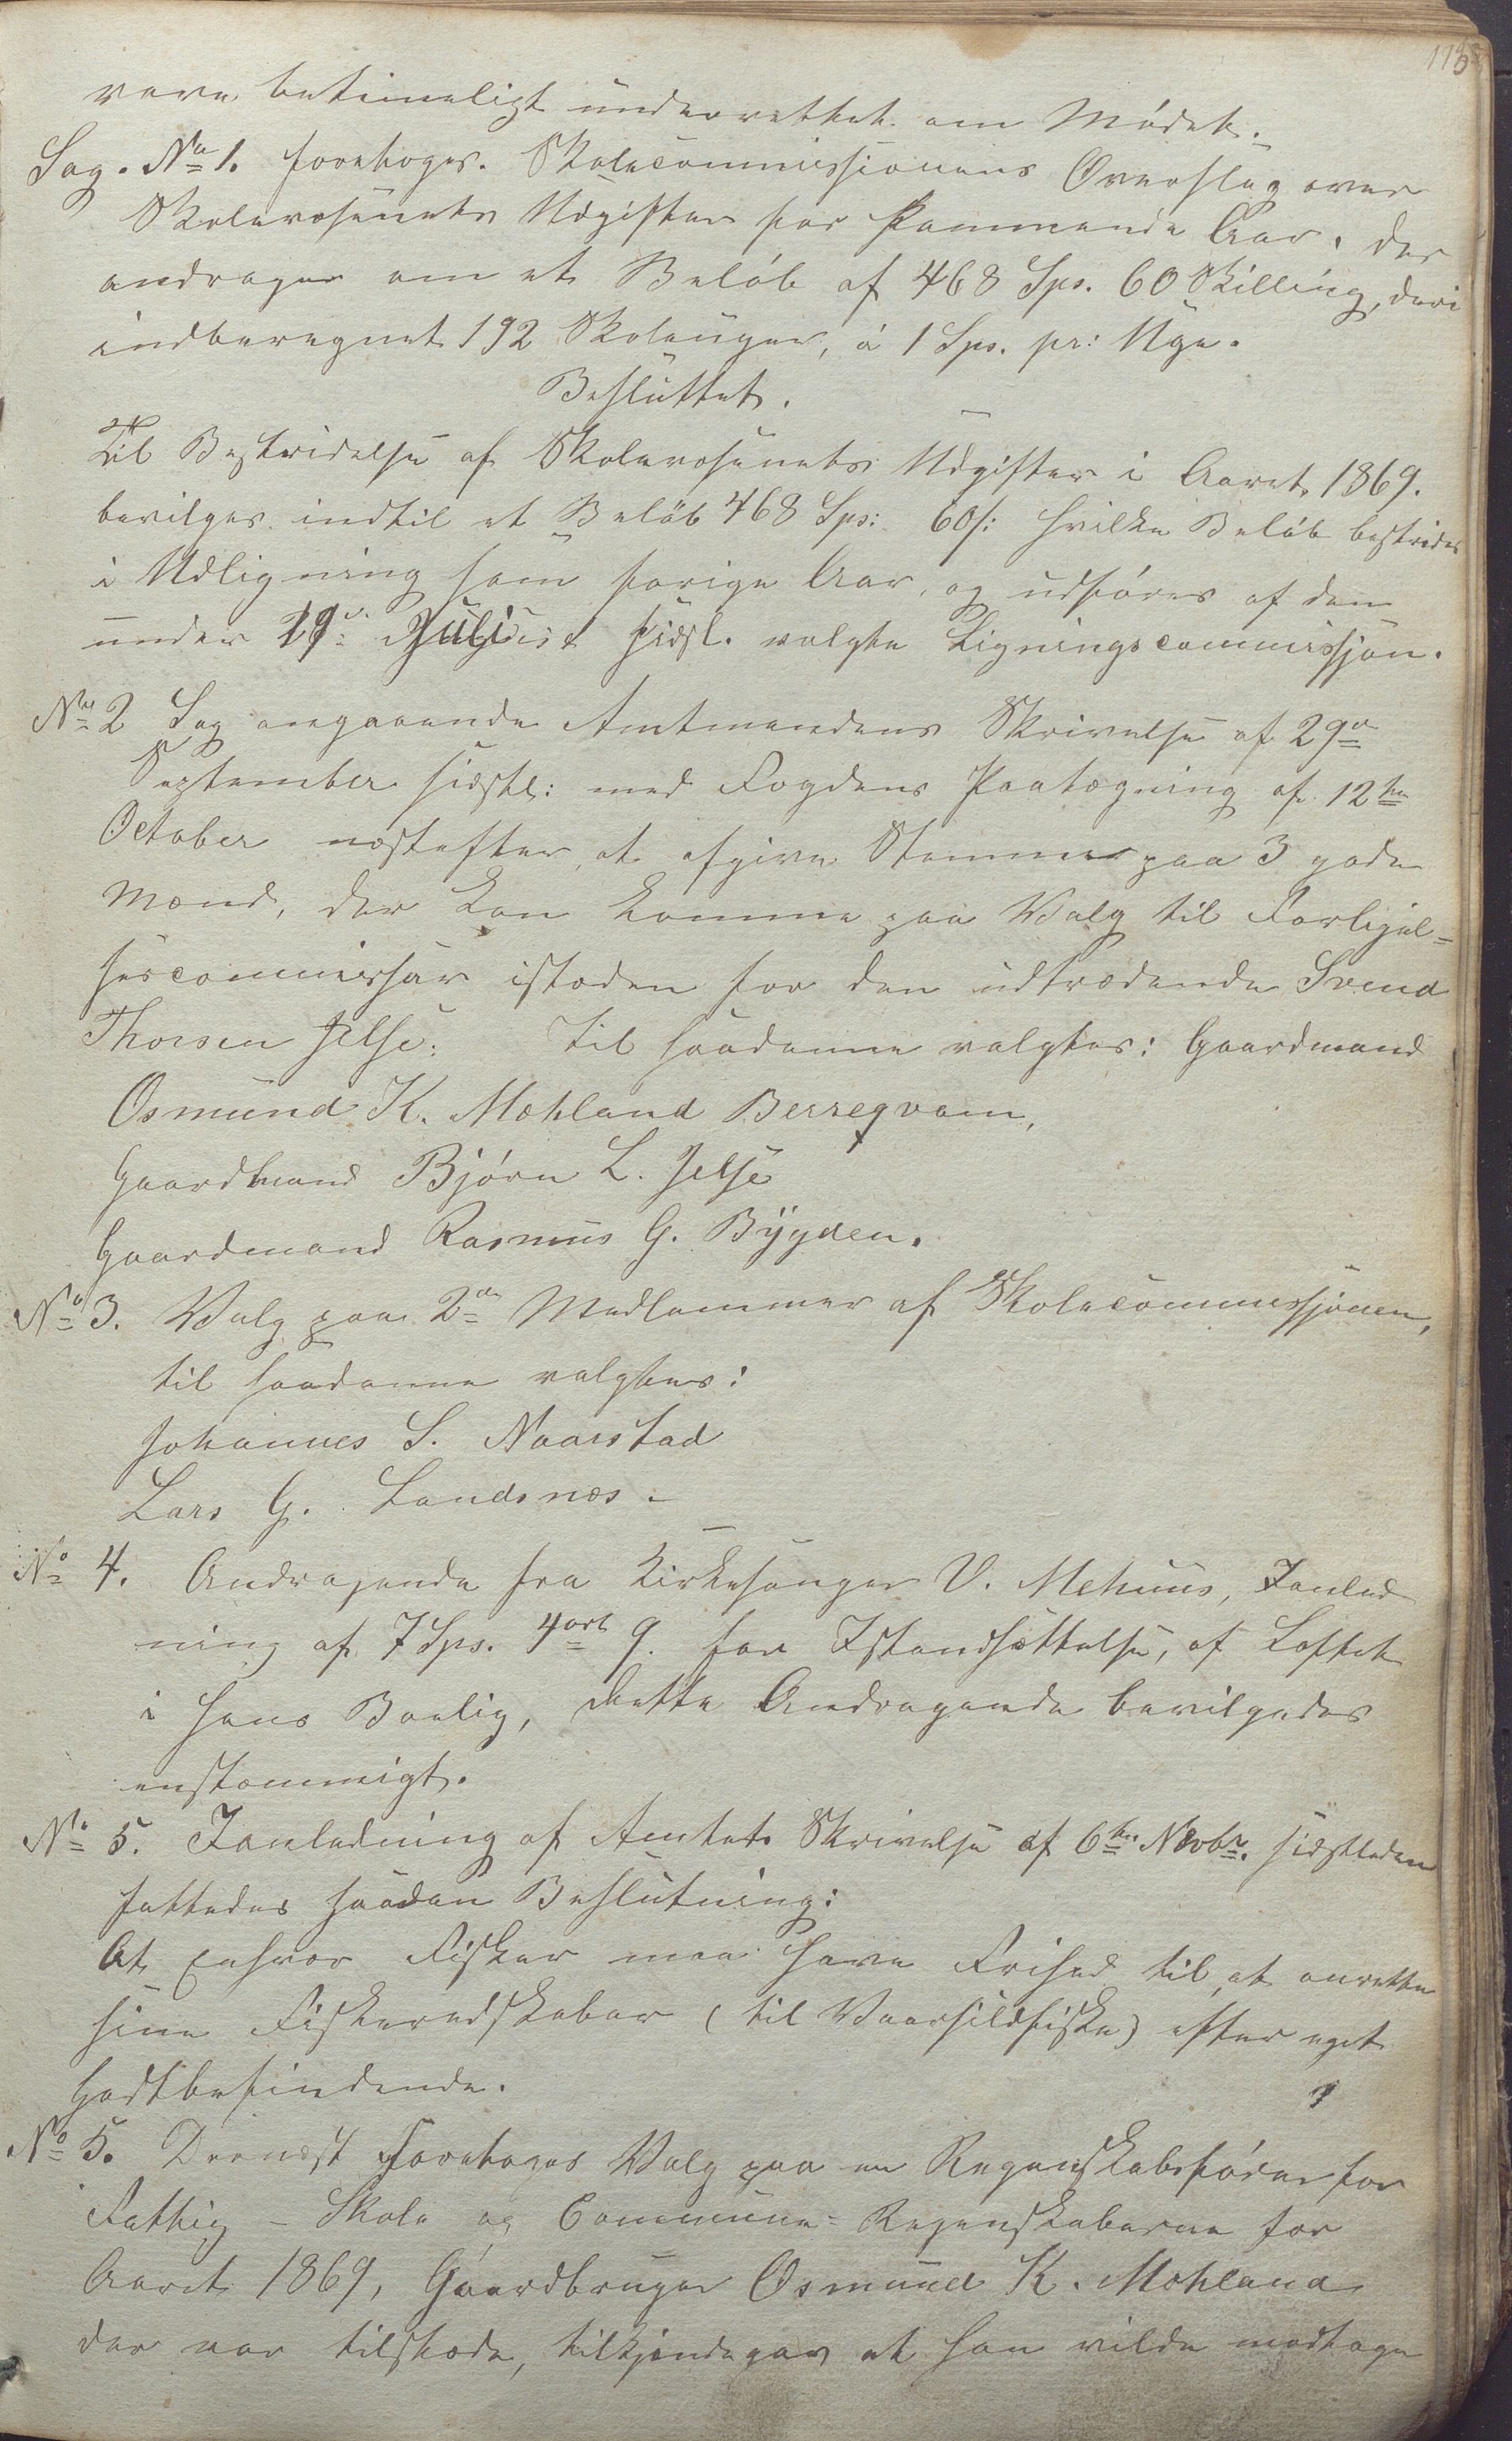 være betimeligt underrettet om Mødet.
Sag. No 1. foretoges. Skolecommissionens Overslag over
Skolevæsenets Udgifter for kommende Aar, der
andrager om et Beløb af 468 Sps. 60 Skilling, deri
indberegnet 192 Skoleuger, á 1 Sps. pr: Uge.
Besluttet.
Til Bestridelse af Skolevæsenets Udgifter i Aaret 1869.
bevilges indtil et Beløb 468 Sps: 60 s: hvilke Beløb bestrides
i Udligning som forige Aar, og udføres af den
under 29de Juli sidsl. valgte Ligningscommissjon.
No 2 Sag angaaende Amtmandens Skrivelse af 29de
September sidstl: med Fogdens Paategning af 12te
October næstefter, at afgive Stemmer paa 3 gode
Mænd, der kan komme paa Valg til Forligel-
sescommissær istæden for den udtrædende Svend
Thorsen Jelse: Til saadanne valgtes: Gaardmand
Osmund K. Mæhland Berregvam,
Gaardmand Bjørn L. Jelse
Gaardmand Rasmus G. Bygden.
No 3. Valg paa 2de Medlemmer af Skolecommissjonen,
til saadanne valgtes:
Johannes S. Naarstad
Lars G. Landsnæs.
No 4. Andragende fra Kirkesanger V. Mehuus, Ianled
ning af 7 Sps. 4 ort 9. for Istandsættelse, af Loftet
i hans Bolig, dette Andragende bevilgedes
enstemmigt.
No 5. Ianledning af Amtets Skrivelse af 6te Novbr. sidstleden
fattedes saadan Beslutning:
At Enhver Fisker maa have Frihed til, at anrette
sine Fiskeredskaber (til Vaarsildfiske) efter eget
Godtbefindende.
No 5. Dernæst foretoges Valg paa en Regenskabsfører for
Fattig - Skole og Commune- Regenskaberne for
Aaret 1869, Gaardbruger Osmund K. Mæhland
der var tilstæde, tilkjendegav at han vilde modtage